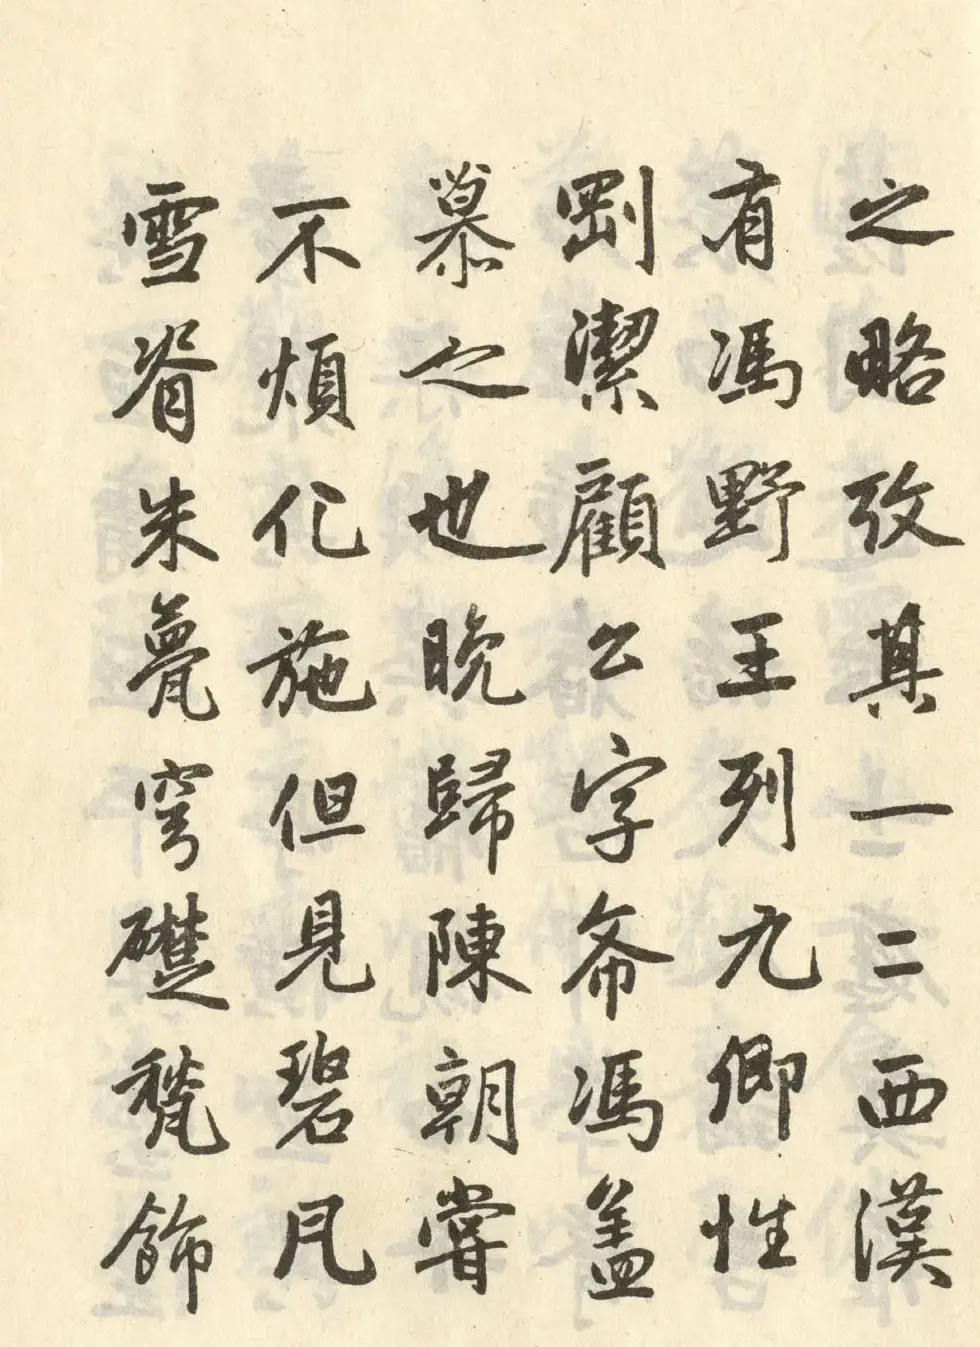 之略攷其一二西漢
有馮野王列九卿性
剛潔顧公字亦馮盖
慕之也晚歸陳朝甞
不煩化施但見碧瓦
雪脊朱甍穹礎甃飾